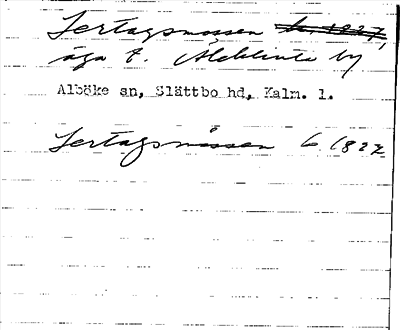 Sertagsmossen
äga t. Aleklinta by
Alböke sn, Slättbo hd, Kalm. l.
Sertagsmossen 6 1827